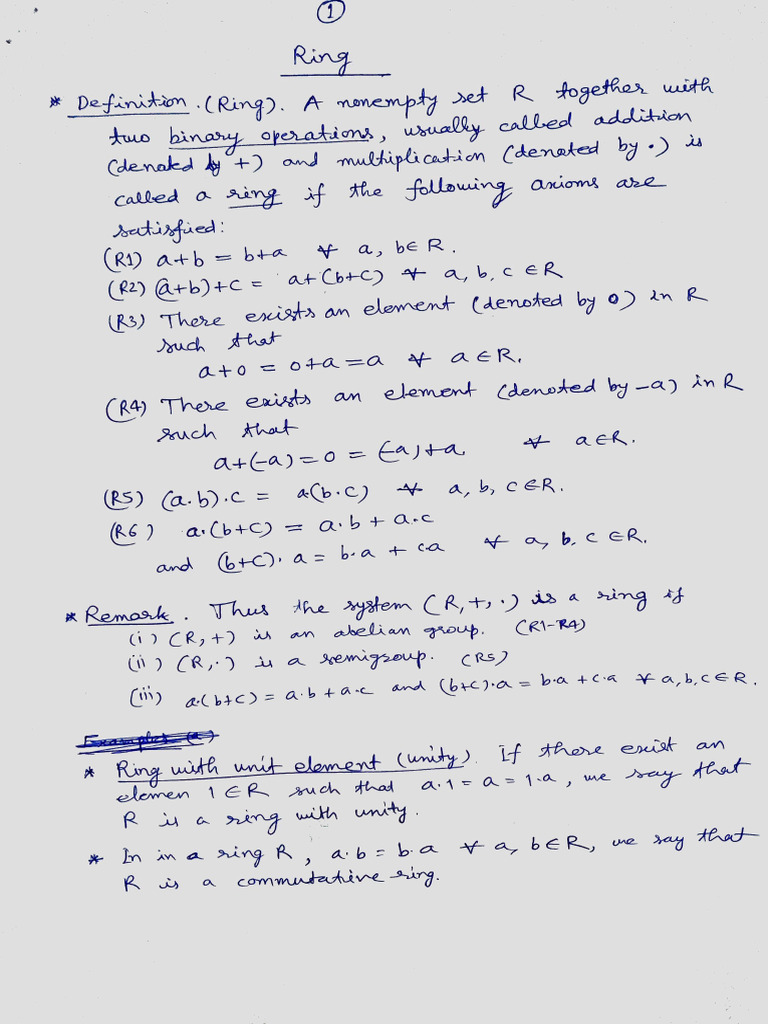 1
Ring
* Definition. (Ring). A nonempty set R together with
two binary operations, usually called addition
(denoted by +) and multiplication (denoted by ·) is
called a ring if the following axioms are
satisfied:
(R1) a+b = b+a ∀ a, b∈R.
(R2) (a+b)+c = a+(b+c) ∀ a, b, c ∈R
(R3) There exists an element (denoted by 0) in R
such that
a+0 = 0+a = a ∀ a∈R.
(R4) There exists an element (denoted by -a) in R
such that
a+(-a) = 0 = (-a)+a ∀ a∈R.
(R5) (a·b)·c = a(b·c) ∀ a, b, c∈R.
(R6) a·(b+c) = a·b + a·c
and (b+c)·a = b·a + c·a ∀ a, b, c ∈R.
* Remark. Thus the system (R,+,·) is a ring if
(i) (R,+) is an abelian group. (R1-R4)
(ii) (R,·) is a semigroup. (R5)
(iii) a·(b+c) = a·b + a·c and (b+c)·a = b·a + c·a ∀ a,b,c∈R.
Examples (a)
* Ring with unit element (unity). If there exist an
elemen 1∈R such that a·1 = a = 1·a, we say that
R is a ring with unity.
* In in a ring R, a·b = b·a ∀ a, b∈R, we say that
R is a commutative ring.